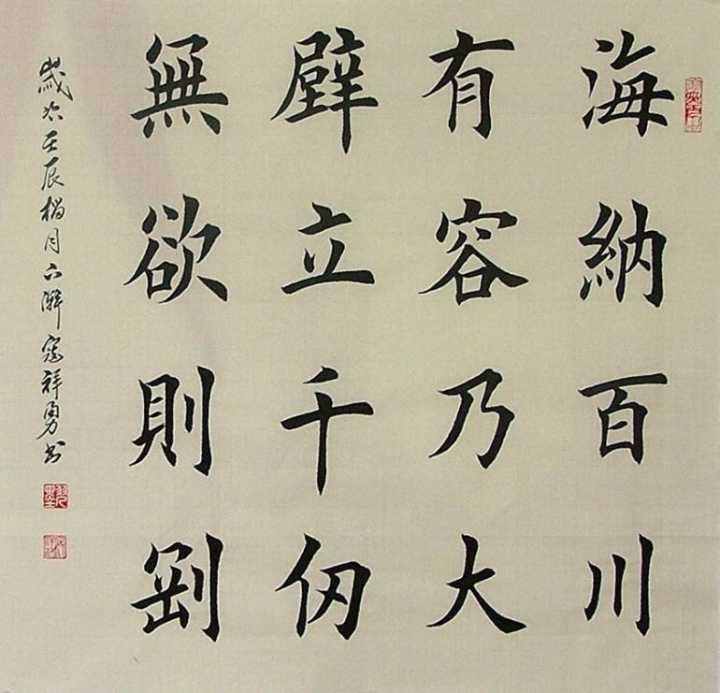 海納百川
有容乃大
壁立千仞
無欲則剛
歲次壬辰桐月六澥寇祥勇书